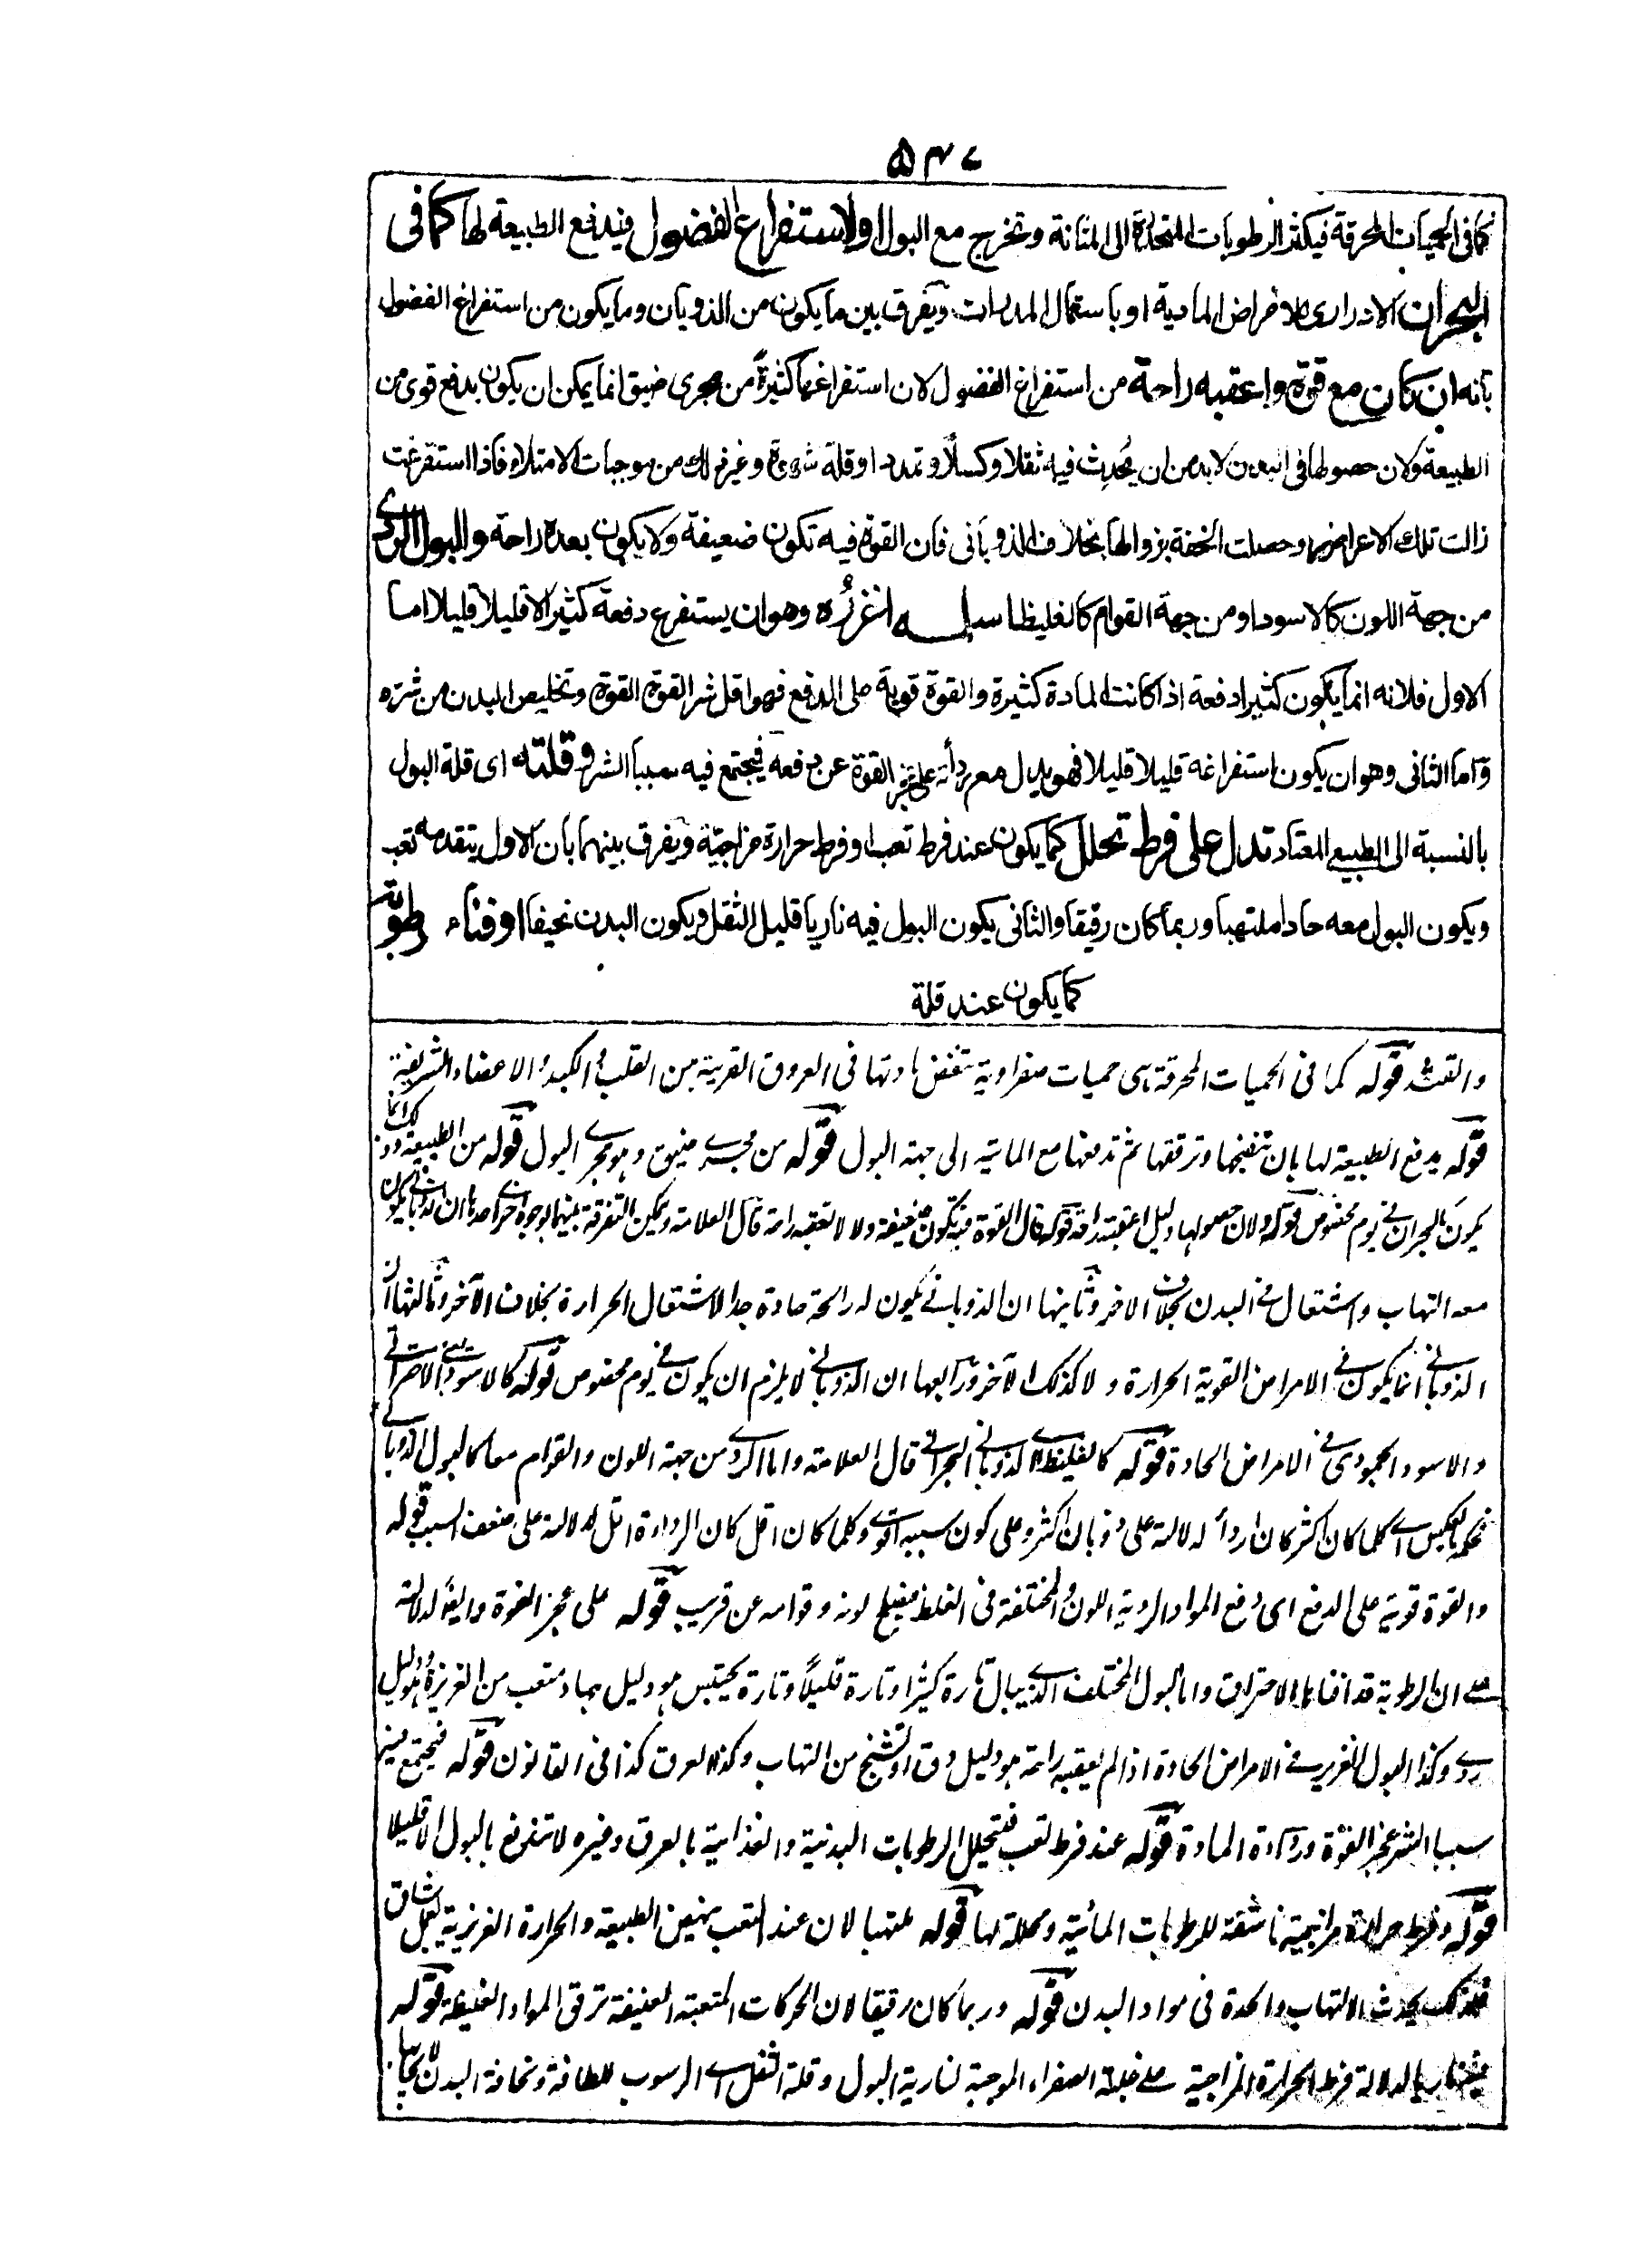 ۵۴۷
كما فى الحميات المحرقة فيكثر الرطوبات المتحللة الى المثانة وتخرج مع البول اولاستفراغ الفضول فيدفع الطبيعة لها كما فى
البحران الادرارى للامراض المادية او باستعمال المدرات ويفرق بين ما يكون من الذوبان وما يكون من استفراغ الفضول
بانه ان كان مع قوة واعقبه راحة من استفراغ الفضول لان استفراغها كثيرة من مجرى ضيق انما يمكن ان يكون بدفع قوى من
الطبيعة ولان حصولها فى البدن لا بد من ان يحدث فيه ثقلا وكسلا وتمدد او قلة شهوة وغير ذلك من موجبات الامتلاء فاذا استفرغت
زالت تلك الاعراض وحصلت الخفة بزوالها بخلاف الذوبانى فان القوة فيه تكون ضعيفة ولا يكون بعده راحة والبول الردى
من جهة اللون كالاسود او من جهة القوام كالغليظ اسلمه اغزره وهو ان يستفرغ دفعة كثيرا لا قليلا قليلا اما
الاول فلانه انما يكون كثيرا دفعة اذا كانت المادة كثيرة والقوة قوية على الدفع فهو اقل شر القوة القوة وتخليص البدن من شره
واما الثانى وهو ان يكون استفراغه قليلا قليلا فهو يدل مع رداءته على عجز القوة عن دفعه فيجتمع فيه سببا الشر وقلته اى قلة البول
بالنسبة الى الطبيعى المعتاد تدل على فرط تحلل كما يكون عند فرط تعب او فرط حرارة مزاجية ويفرق بينهما بان الاول يتقدمه تعب
ويكون البول معه حادا ملتهبا وربما كان رقيقا والثانى يكون البول فيه ناريا قليل الثقل ويكون البدن نحيفا اوفناء رطوبة
كما يكون عند قلة
والقئ قوله كما فى الحميات المحرقة هى حميات صفراوية تتعفن مادتها فى العروق القريبة من القلب والكبد والاعضاء الشريفة
قوله يدفع الطبيعة لها بان تنضجها وترققها ثم تدفعها مع المائية الى جهة البول قوله من مجرى ضيق وهو مجرى البول قوله من الطبيعة وذلك انما
يكون بالبحران فى يوم مخصوص قوله ولان حصولها دليل اعقبته راحة قوله فان القوة فيه تكون ضعيفة ولا تعقبه راحة قال العلامة ويمكن التفرقة بينهما بوجوه اخر احدها ان الذوبانى يكون
معه التهاب واشتعال فى البدن بخلاف الاخر وثانيها ان الذوبانى يكون له رائحة حادة جدا لاشتعال الحرارة بخلاف الآخر وثالثها ان
الذوبانى انما يكون فى الامراض القوية الحرارة ولا كذلك الآخر ورابعها ان الذوبانى لا يلزم ان يكون فى يوم مخصوص قوله كالاسود يعنى الاحتراقى
والاسود الجمودى فى الامراض الحادة قوله كالغليظ اى الذوبانى البحرانى قال العلامة واما الردى من جهة اللون والقوام معا كالبول الذوبانى
فحكمه بالعكس اى كلما كان اكثر كان اردأ لدلالته على ذوبان اكثر وعلى كون سببه اقوى وكلما كان اقل كان الرداءة اقل لدلالته على ضعف السبب قوله
والقوة قوية على الدفع اى دفع المواد الردية اللون والمختلفة فى الغلظ فيصلح لونه وقوامه عن قريب قوله على عجز القوة وايضا لدلالته
على ان الرطوبة قد افناها الاحتراق واما البول المختلف الذى يبال تارة كثيرا وتارة قليلا وتارة يحتبس هو دليل جهاد متعب من الغريزة وهو دليل
ردى وكذا البول الغزير فى الامراض الحادة اذا لم يعقبه راحة هو دليل دق او تشنج من التهاب وكذا العرق كذا فى القانون قوله فيجتمع فيه
سببا الشر عجز القوة ورداءة المادة قوله عند فرط تعب فيتحلل الرطوبات البدنية والغذائية بالعرق وغيره لا تندفع بالبول الا قليلا
قوله وفرط حرارة مزاجية ناشفة للرطوبات المائية ومحللة لها قوله ملتهبا لان عند التعب ينهض الطبيعة والحرارة الغريزية لعمل شاق
فلذلك يحدث الالتهاب والحدة فى مواد البدن قوله وربما كان رقيقا لان الحركات المتعبة العنيفة ترقق المواد الغليظة قوله
بالدلالة فرط الحرارة المزاجية على غلبة الصفراء الموجبة لنارية البول وقلة الثفل اى الرسوب للطافة ونحافة البدن